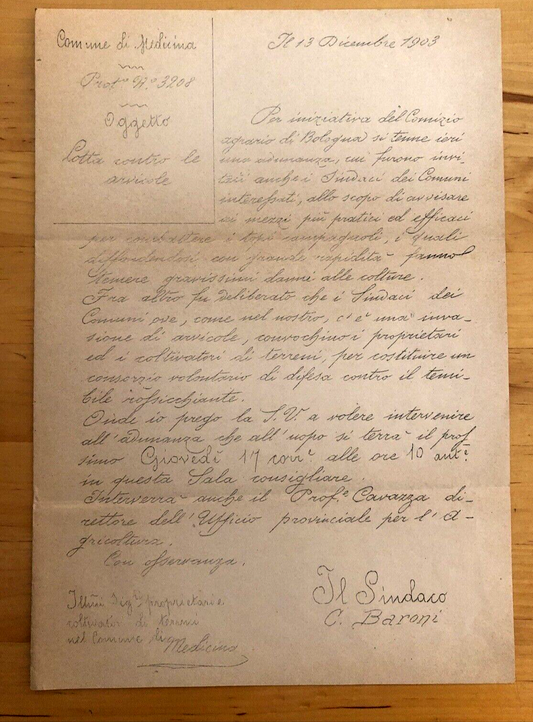 Comune di Medicina
Prot.º N.º 3208
Oggetto
Lotta contro le
arvicole
Il 13 Dicembre 1903
Per iniziativa del Comizio
agrario di Bologna si tenne ieri
una adunanza, cui furono invi-
tati anche i Sindaci dei Comuni
interessati, allo scopo di avvisare
ai mezzi più pratici ed efficaci
per combattere i topi campagnoli, i quali
diffondendosi con grande rapidità fanno
temere gravissimi danni alle colture.
Fra altro fu deliberato che i Sindaci dei
Comuni ove, come nel nostro, c'è una inva-
sione di arvicole, convochino i proprietari
ed i coltivatori di terreni, per costituire un
consorzio volontario di difesa contro il temi-
bile rossicchiante.
Onde io prego la S.V. a volere intervenire
all'adunanza che all'uopo si terrà il pros
simo Giovedì 17 corrᵗ alle ore 10 antᵉ
in questa Sala consigliare.
Interverrà anche il Prof.ᵉ Cavazza di-
rettore dell'Ufficio provinciale per l'A-
gricoltura.
Con osservanza.
Il Sindaco
C. Baroni
Illmi Sigʳⁱ proprietari e
coltivatori di terreni
nel Comune di
Medicina